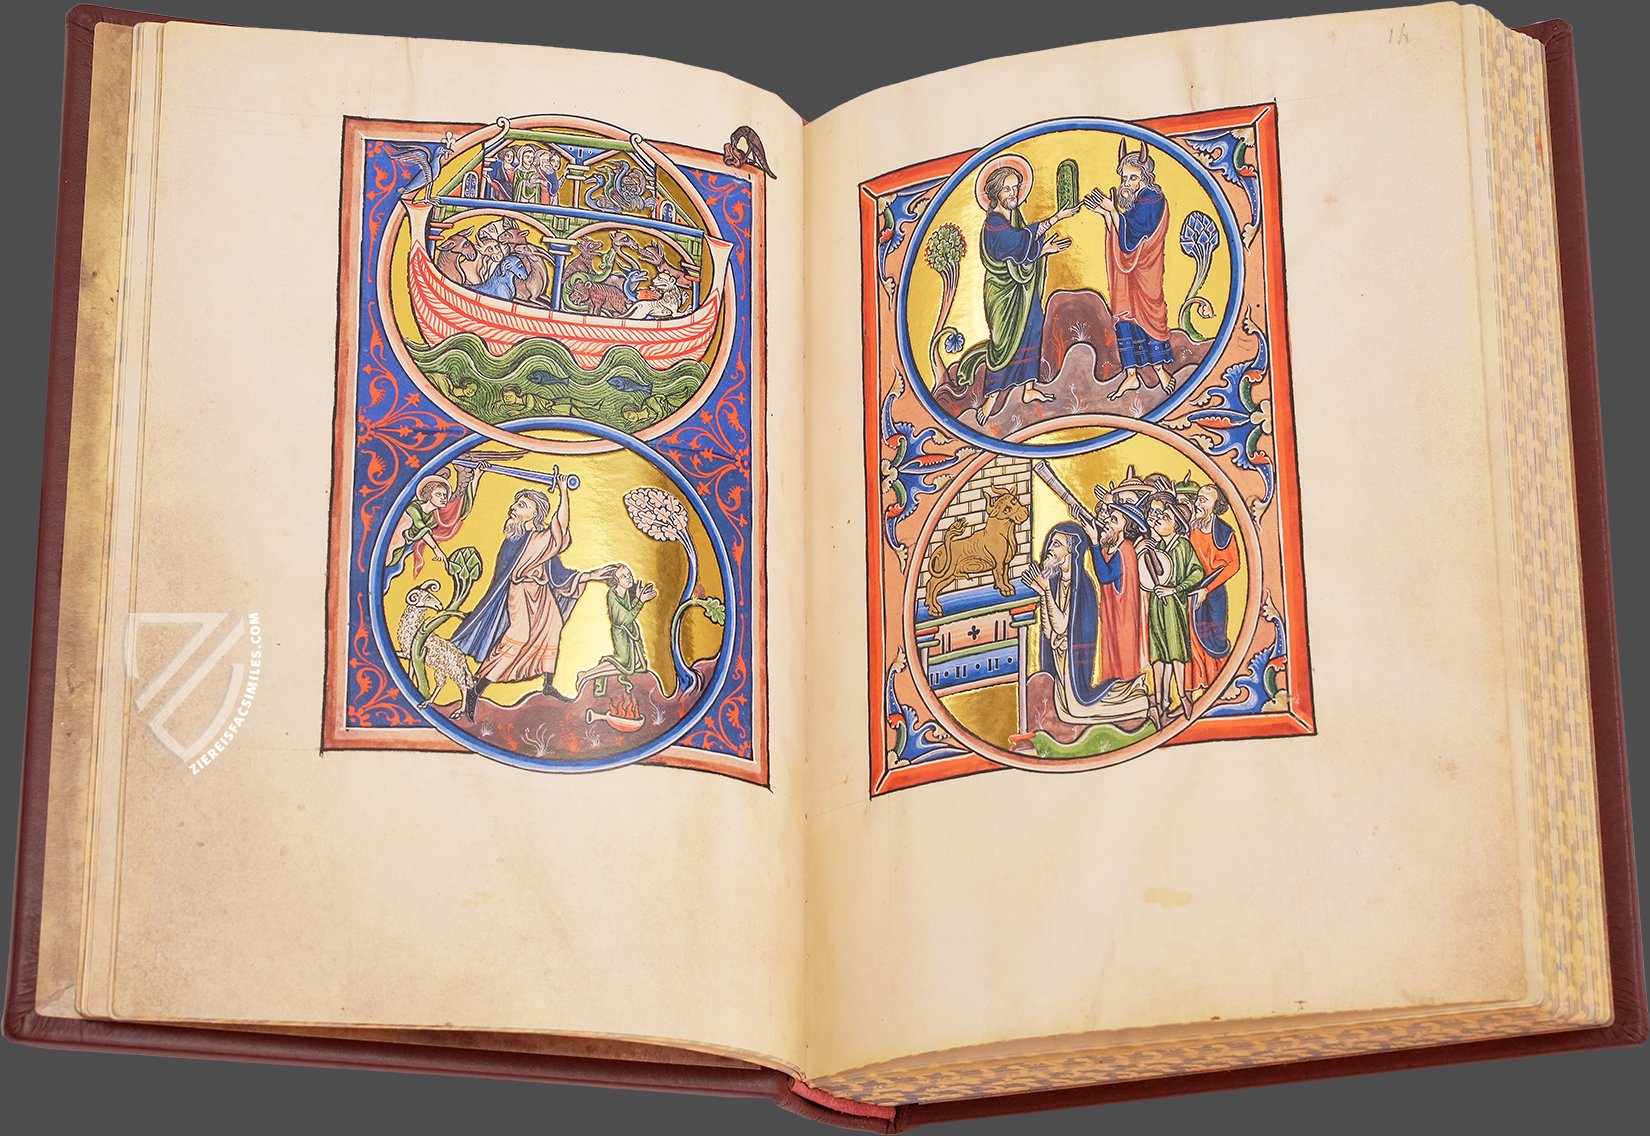 14
ZIEREISFACSIMILES.COM